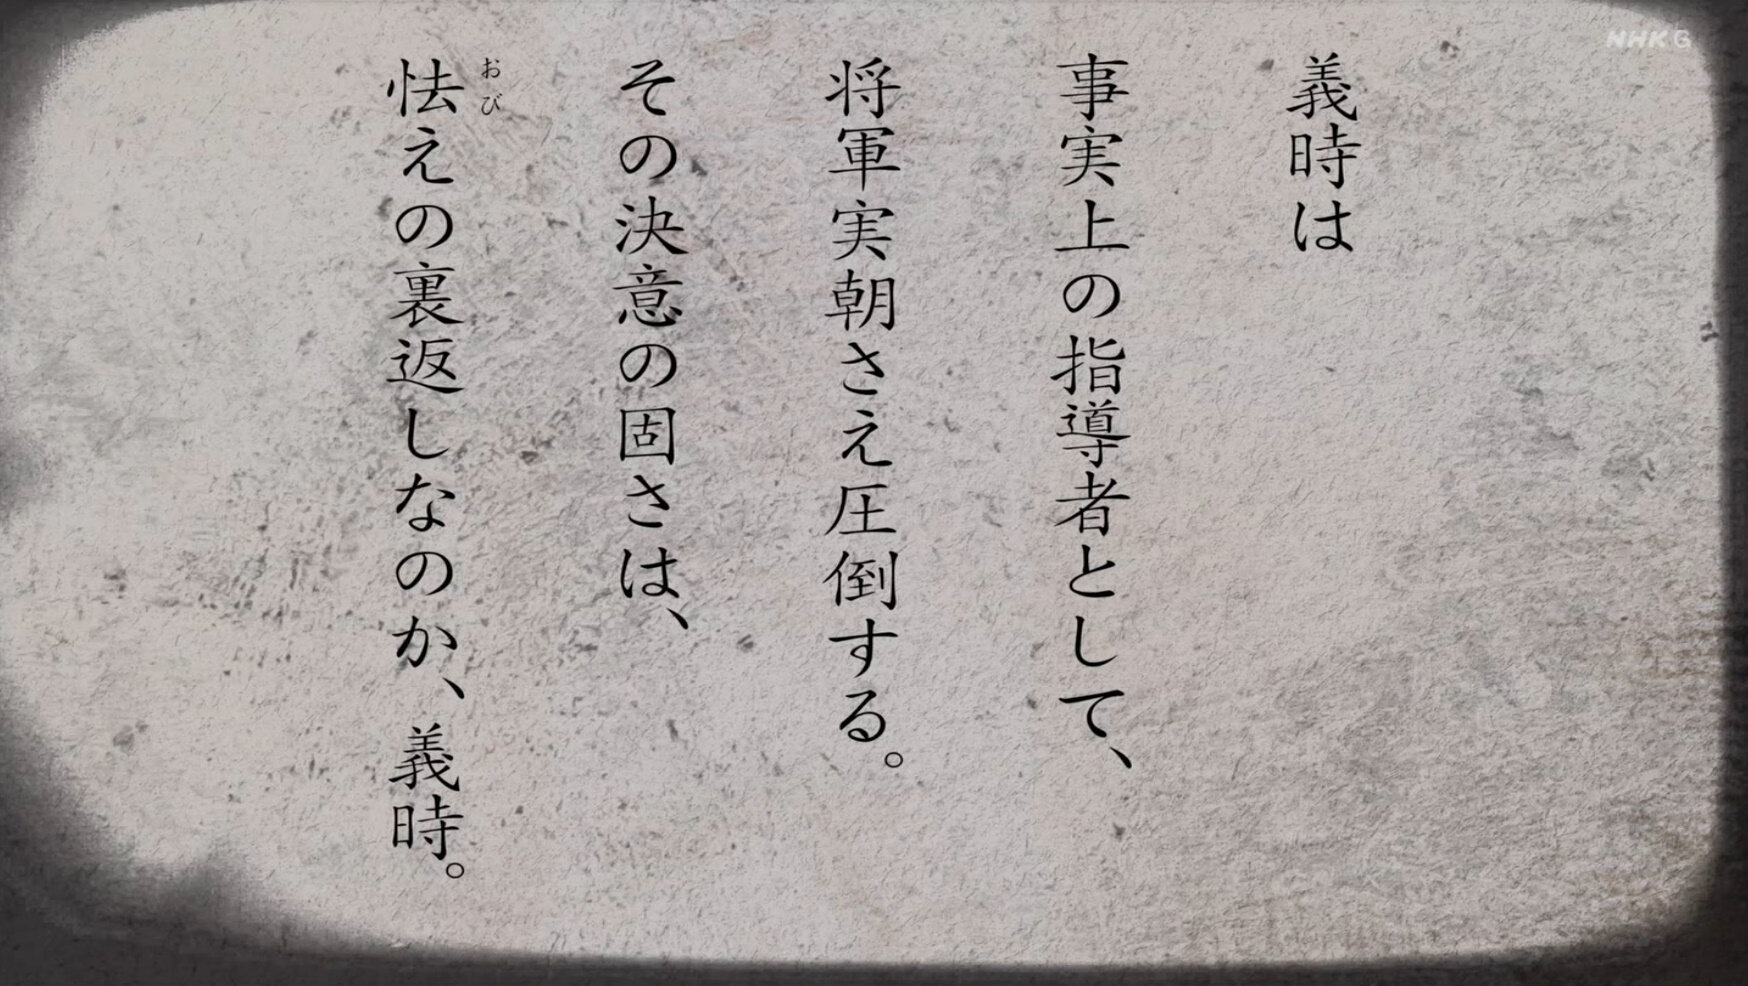 義時は
事実上の指導者として、
将軍実朝さえ圧倒する。
その決意の固さは、
怯えの裏返しなのか、義時。
おび
NHK G